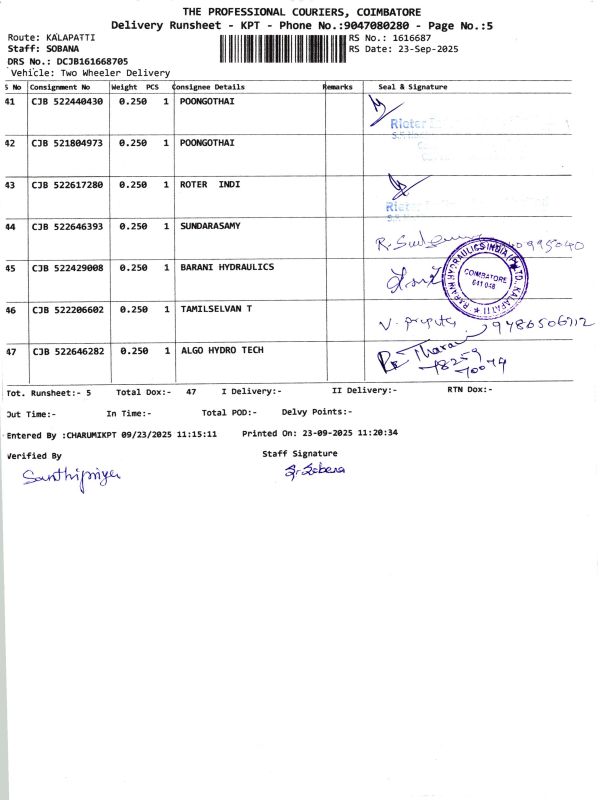 THE PROFESSIONAL COURIERS, COIMBATORE
Delivery Runsheet - KPT - Phone No.:9047080280 - Page No.:5
Route: KALAPATTI
RS No.: 1616687
Staff: SOBANA
RS Date: 23-Sep-2025
DRS No.: DCJB161668705
Vehicle: Two Wheeler Delivery
S No Consignment No Weight PCS Consignee Details Remarks Seal & Signature
41 CJB 522440430 0.250 1 POONGOTHAI
Rieter
42 CJB 521804973 0.250 1 POONGOTHAI
43 CJB 522617280 0.250 1 ROTER INDI
44 CJB 522646393 0.250 1 SUNDARASAMY
45 CJB 522429008 0.250 1 BARANI HYDRAULICS
BARANI HYDRAULICS INDIA (P) LTD., KALAPATTI
COIMBATORE
641 048
46 CJB 522206602 0.250 1 TAMILSELVAN T
47 CJB 522646282 0.250 1 ALGO HYDRO TECH
Tot. Runsheet:- 5 Total Dox:- 47 I Delivery:- II Delivery:- RTN Dox:-
Out Time:- In Time:- Total POD:- Delvy Points:-
Entered By :CHARUMIKPT 09/23/2025 11:15:11 Printed On: 23-09-2025 11:20:34
Verified By Staff Signature
Santhipriya